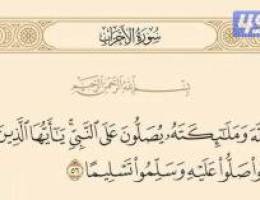 سُورَةُ الأَحْزَابِ
بِسْمِ اللَّهِ الرَّحْمَٰنِ الرَّحِيمِ
وَمَلَٰٓئِكَتَهُۥ يُصَلُّونَ عَلَى ٱلنَّبِيِّ ۚ يَٰٓأَيُّهَا ٱلَّذِينَ
صَلُّوا۟ عَلَيْهِ وَسَلِّمُوا۟ تَسْلِيمًا ٥٦